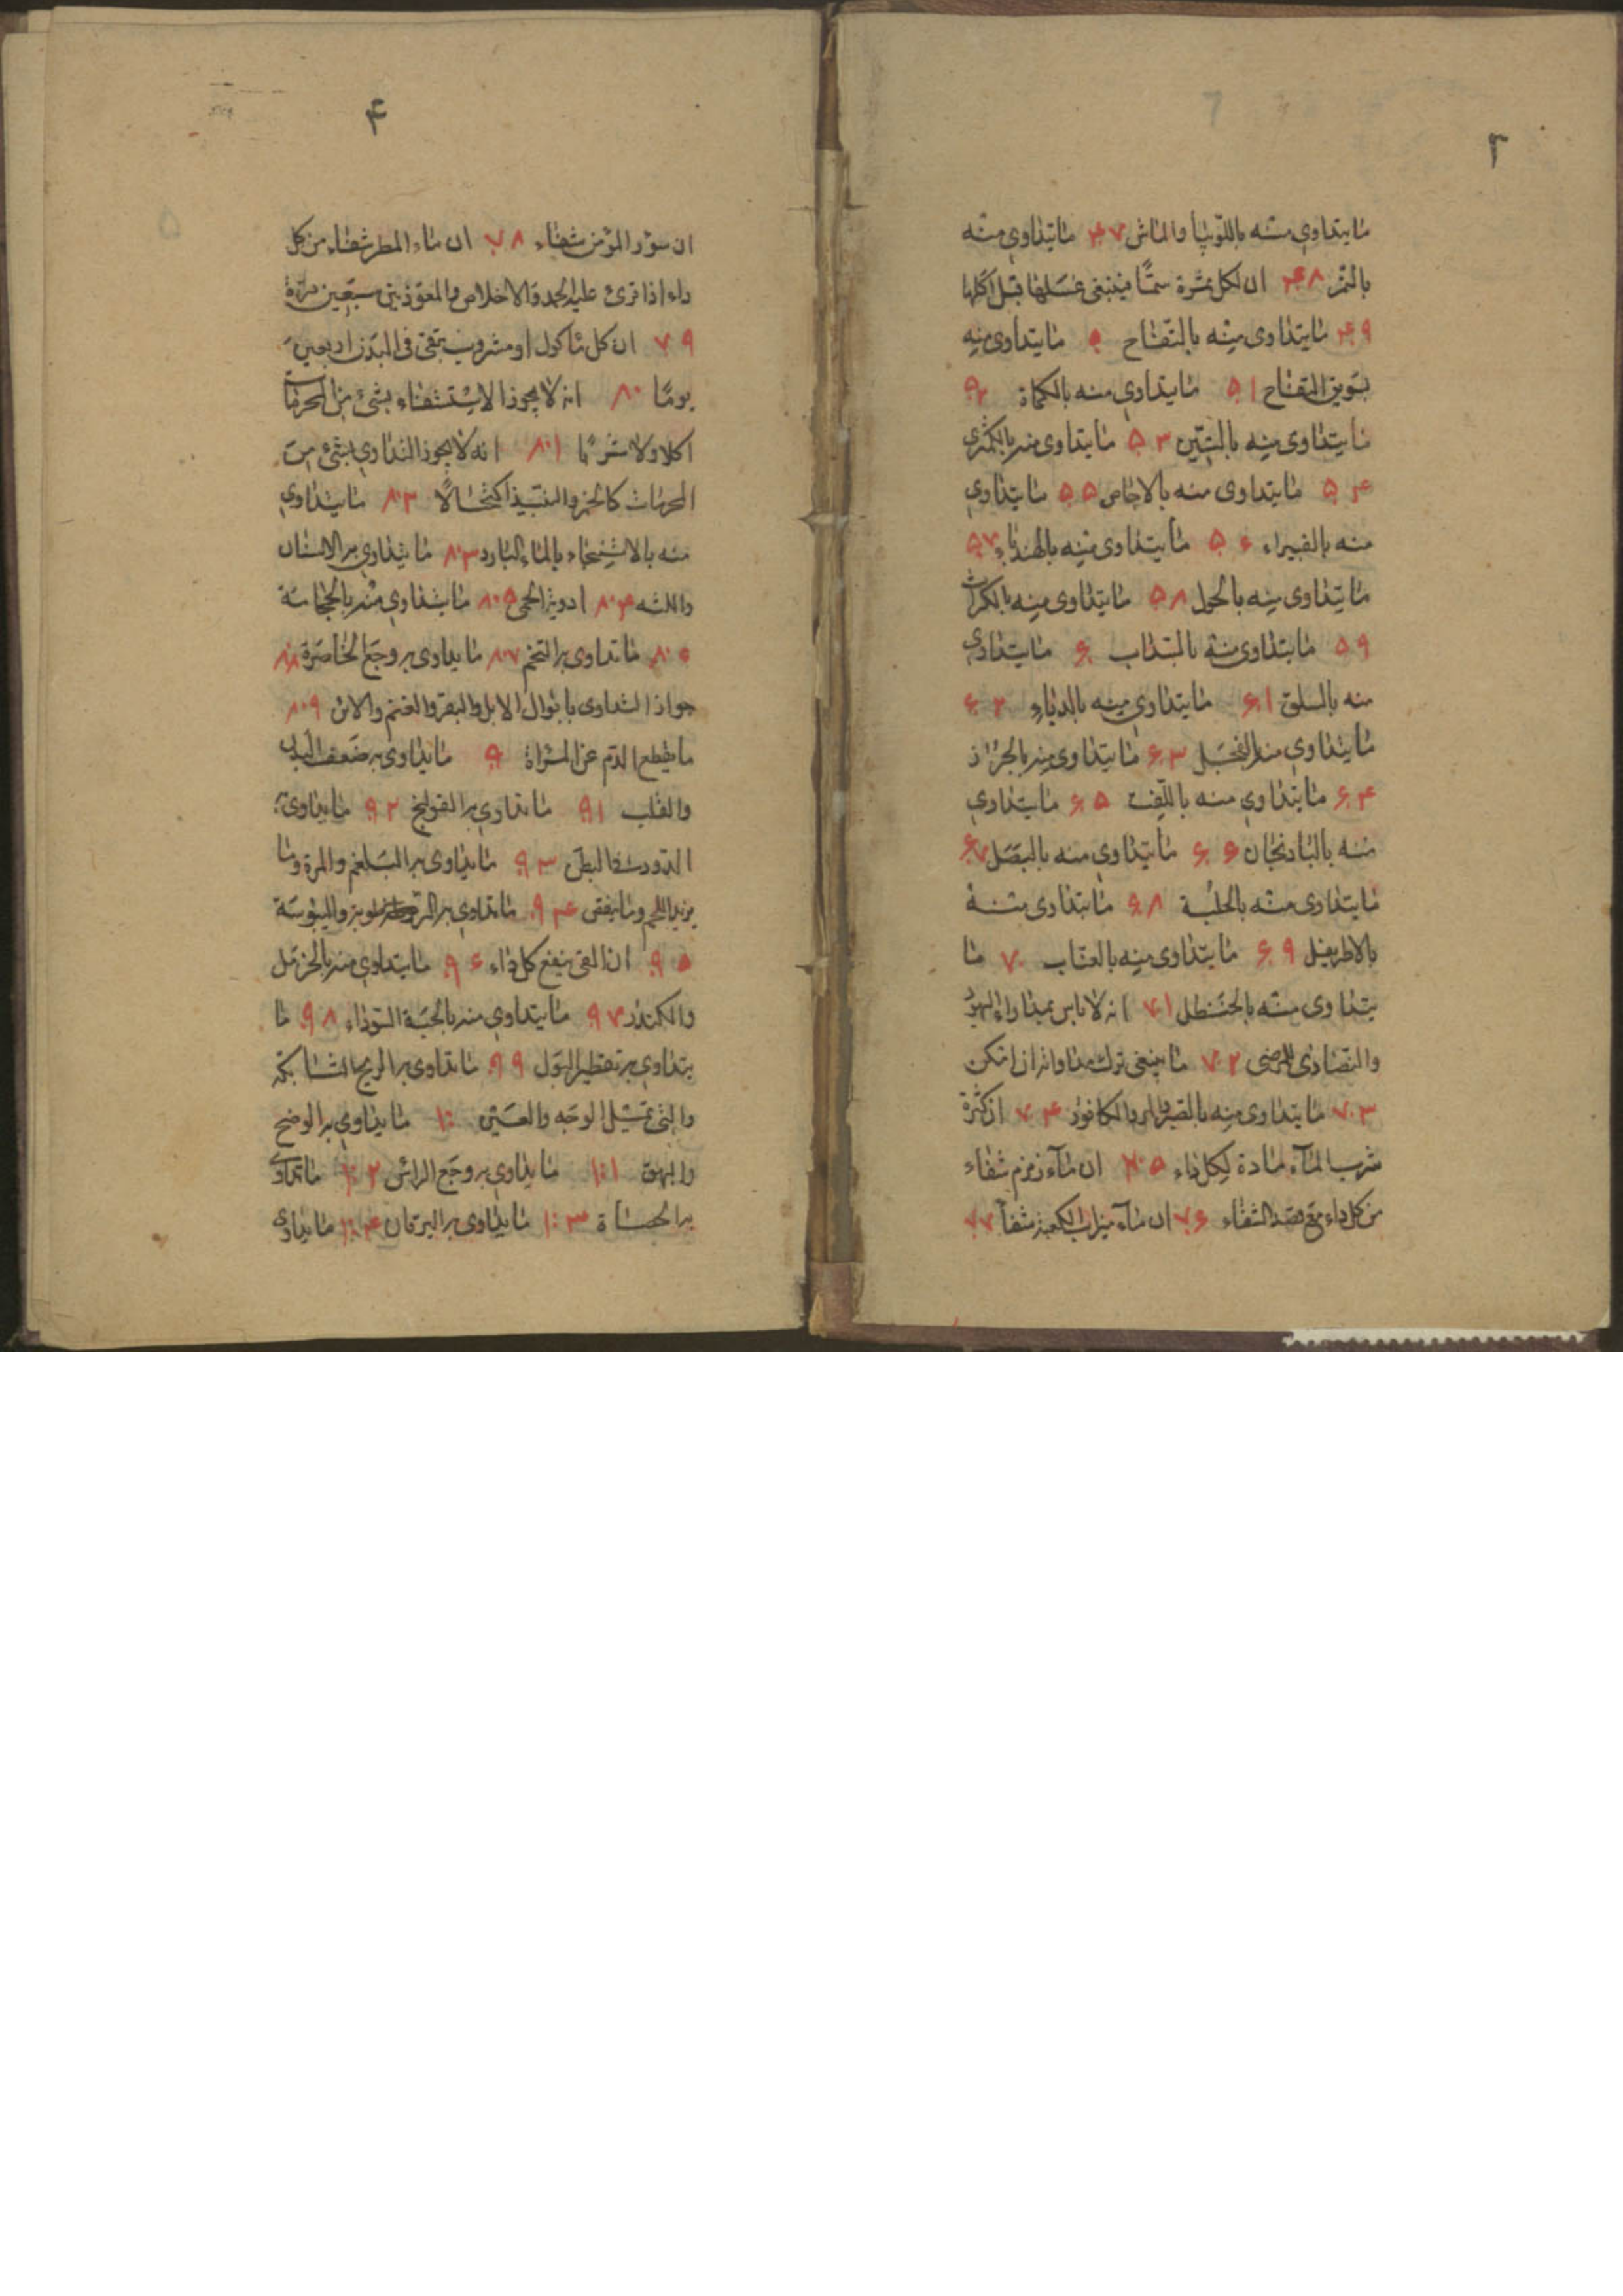 ٣
ما يتداوى منه باللوبيا والماش ٤٧ ما يتداوى منه
بالتمر ٤٨ ان لكل ثمرة سمّا فينبغى غسلها قبل اكلها
٤٩ ما يتداوى منه بالتفاح ٥٠ ما يتداوى منه
بسويق التفاح ٥١ ما يتداوى منه بالكماة ٥٢
ما يتداوى منه بالتين ٥٣ ما يتداوى منه بالكمثرى
٥٤ ما يتداوى منه بالاجاص ٥٥ ما يتداوى
منه بالغبيراء ٥٦ ما يتداوى منه بالهندباء ٥٧
ما يتداوى منه بالحول ٥٨ ما يتداوى منه بالكراث
٥٩ ما يتداوى منه بالسداب ٦٠ ما يتداوى
منه بالسلق ٦١ ما يتداوى منه بالدباء ٦٢
ما يتداوى منه بالفجل ٦٣ ما يتداوى منه بالجزر
٦٤ ما يتداوى منه باللفت ٦٥ ما يتداوى
منه بالبادنجان ٦٦ ما يتداوى منه بالبصل ٦٧
ما يتداوى منه بالحلبة ٦٨ ما يتداوى منه
بالاطريفل ٦٩ ما يتداوى منه بالعناب ٧٠ ما
يتداوى منه بالحنضطل ٧١ انه لا باس بمداواة اليهود
والنصارى للمرضى ٧٢ ما ينبغى ترك مداواته ان امكن
٧٣ ما يتداوى منه بالصبر والمر والكافور ٧٤ ان كثرة
شرب الماء مادة لكل داء ٧٥ ان ماء زمزم شفاء
من كل داء مع قصد الشفاء ٧٦ ان ماء ميزاب الكعبة شفا ٧٧
٤
ان سؤر المؤمن شفاء ٧٨ ان ماء المطر شفاء من كل
داء اذا قرئ عليه الحمد والاخلاص والمعوّذتين سبعين مرّة
٧٩ ان كل ماكول او مشروب يبقى فى البدن اربعين
يومًا ٨٠ انه لا يجوز الاستشفاء بشئ من المحرمات
اكلا ولا شربًا ٨٠١ انه لا يجوز التداوى بشئ من
المحرمات كالخمر والنبيذ اكتحالًا ٨٠٢ ما يتداوى
منه بالاستنجاء بالماء البارد ٨٠٣ ما يتداوى به الاسنان
واللثه ٨٠٤ ادوية الحمى ٨٠٥ ما يتداوى منه بالحجامة
٨٠٦ ما تداوى به التخم ٨٠٧ ما يداوى به وجع الخاصرة ٨٠٨
جواز التداوى بابوال الابل والبقر والغنم والاتن ٨٠٩
ما يقطع الدّم عن المراة ٩٠ ما يداوى به ضعف البدن
والقلب ٩١ ما تداوى به القولنج ٩٢ ما يداوى به
الدود فى البطن ٩٣ ما يداوى به البلغم والمرة وما
يزيد اللحم وما ينقص ٩٤ ما تداوى به الرطوبة واليبوسة
٩٥ ان القى ينفع كل داء ٩٦ ما يتداوى منه بالحرمل
والكندر ٩٧ ما يتداوى منه بالحبة السوداء ٩٨ ما
يتداوى به تقطير البول ٩٩ ما تداوى به الريح الشابكة
والتى تميل الوجه والعين ١٠٠ ما يداوى به الوضح
والبهق ١٠١ ما يداوى به وجع الراس ١٠٢ ما تداوى
به الحصاة ١٠٣ ما يداوى به اليرقان ١٠٤ ما يداوى